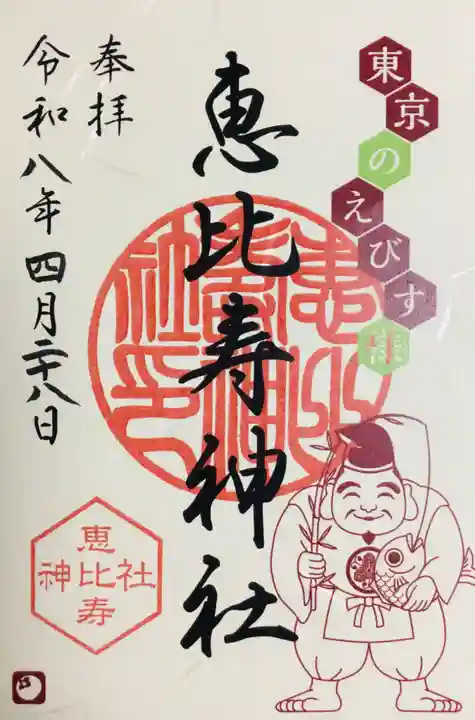 東京のえびす様
恵比寿神社
奉拝
令和八年四月二十八日
恵比寿
神社